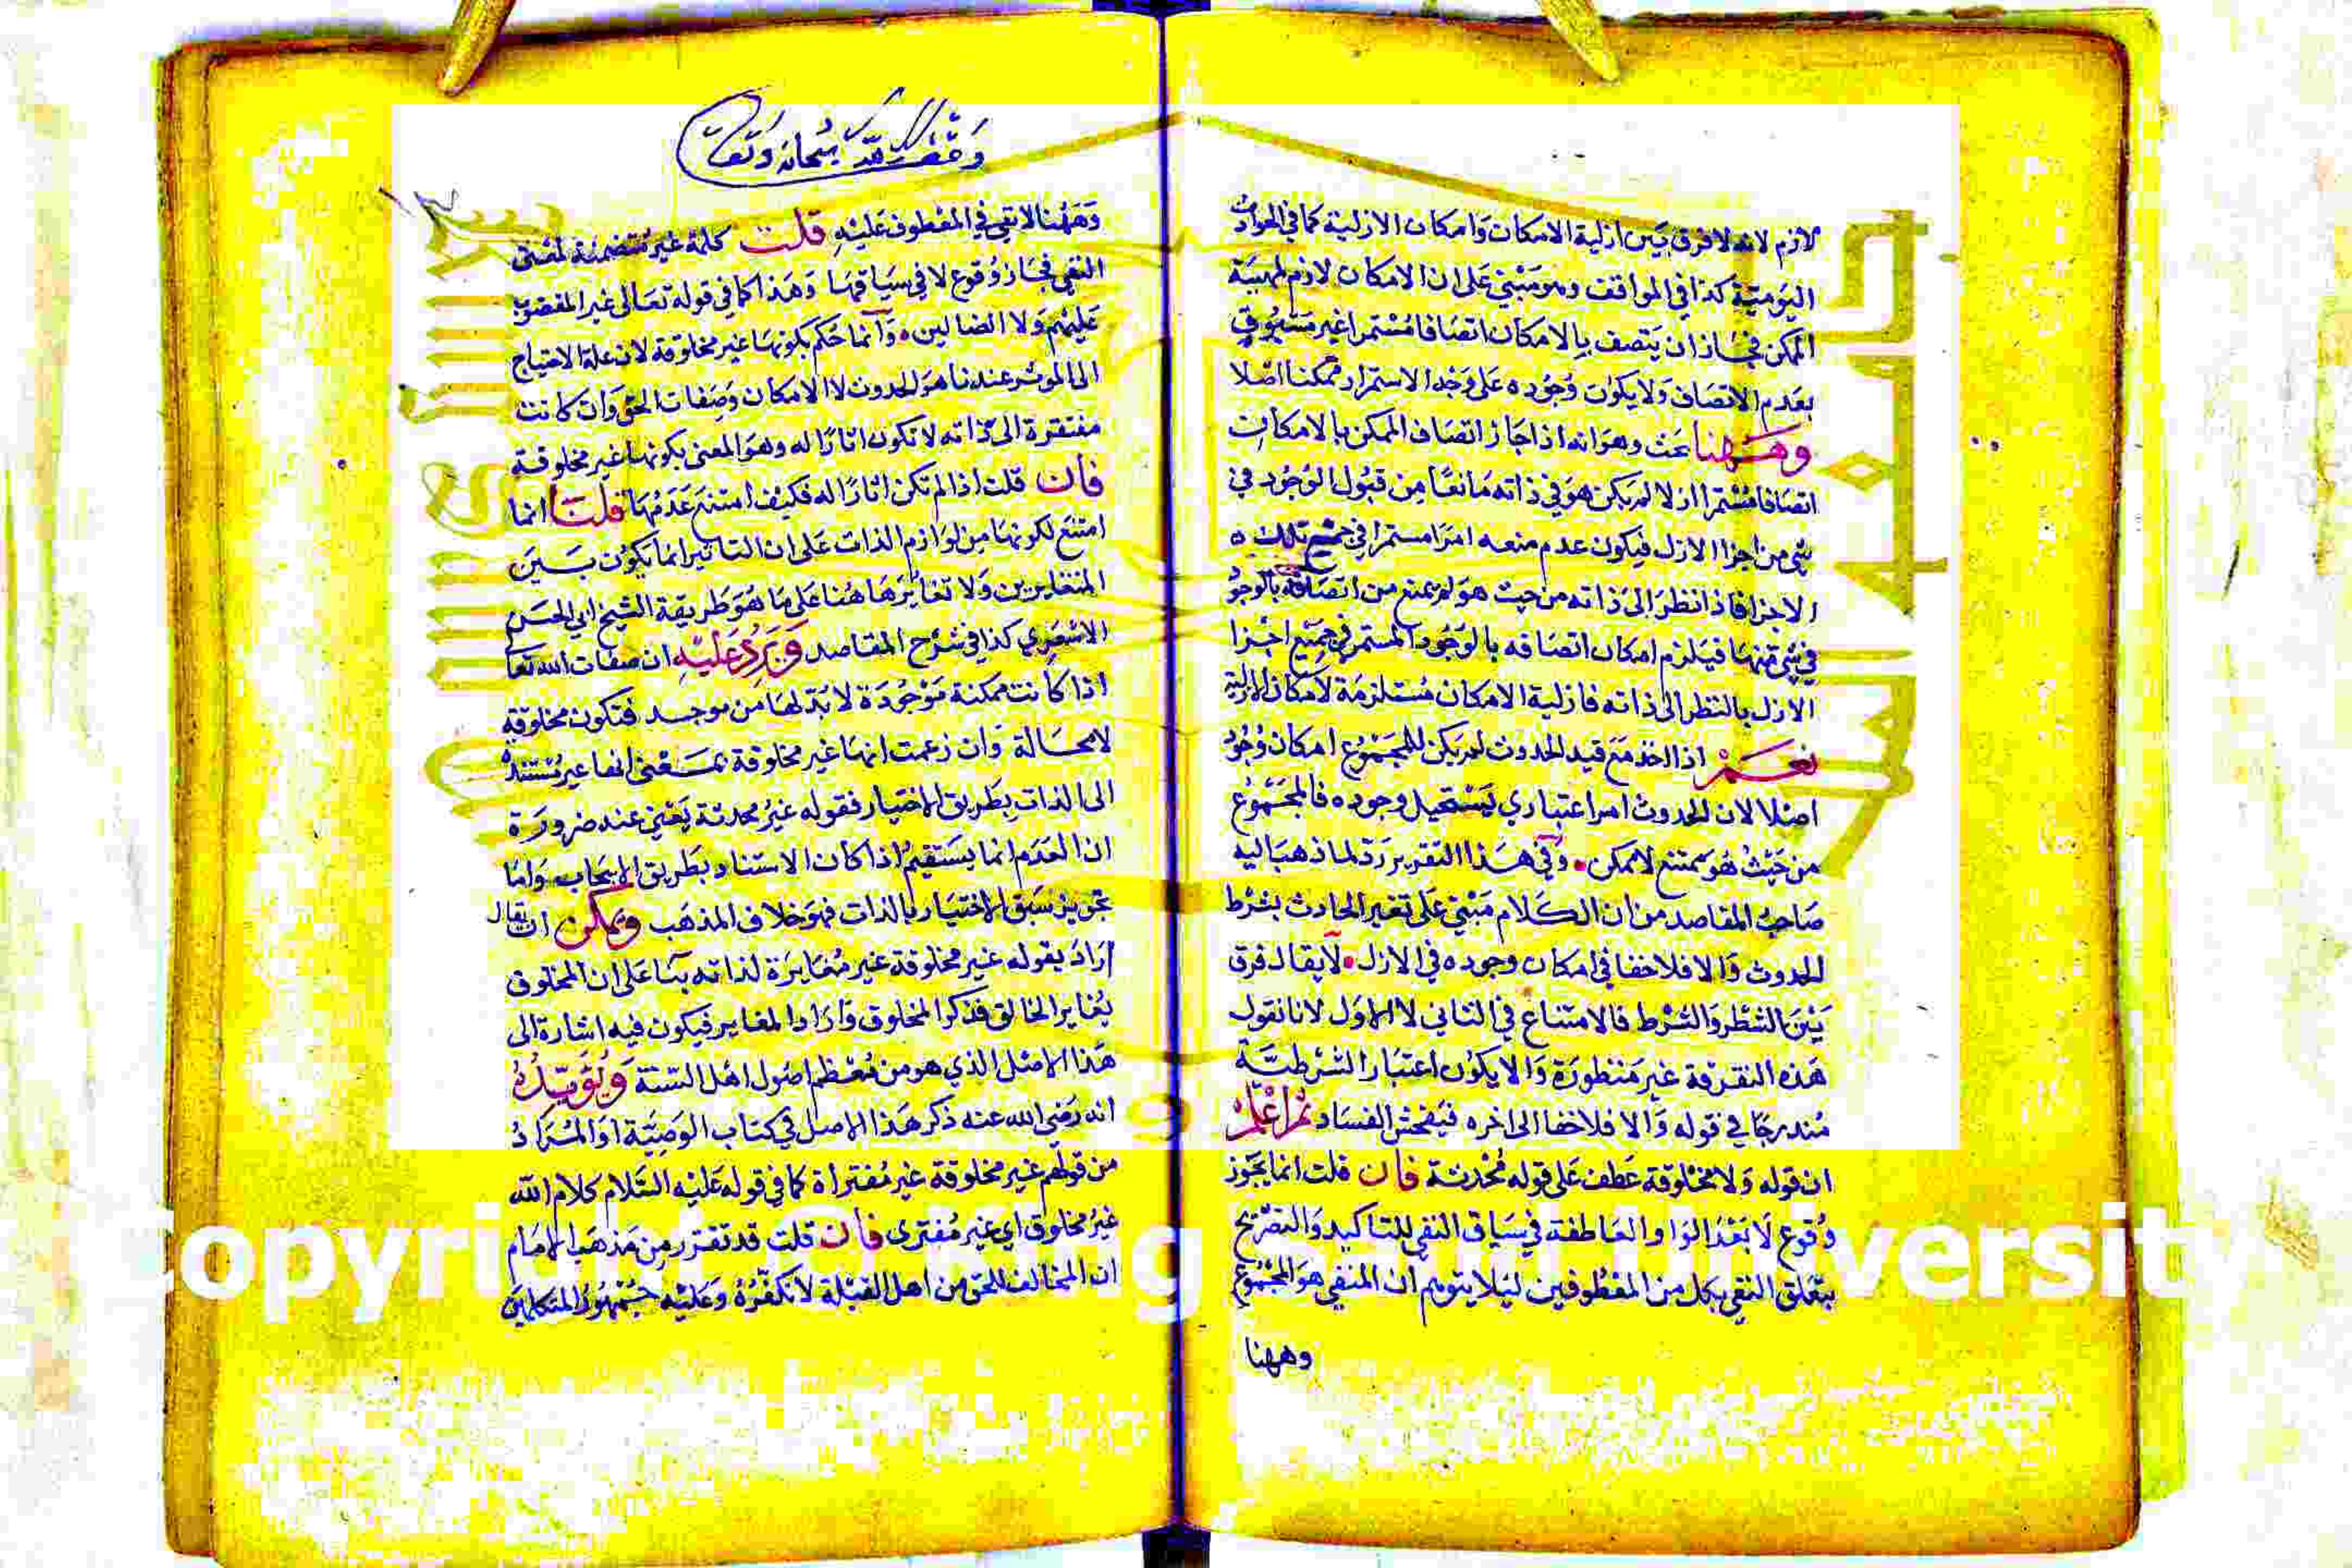 لازم لانه لا فرق بين ازلية الامكان وامكان الازلية كما في الحوادث
اليومية كذا في المواقف وهو مبني على ان الامكان لازم لمهية
الممكن فجاز ان يتصف بالامكان اتصافا مستمرا غير مسبوق
بعدم الاتصاف ولا يكون وجوده على وجه الاستمرار ممكنا اصلا
وههنا بحث وهو انه اذا جاز اتصاف الممكن بالامكان
اتصافا مستمرا ازلا لم يكن هو في ذاته مانعا من قبول الوجود في
شي من اجزا الازل فيكون عدم منعه امرا مستمرا في جميع تلك
الاجزا فاذا نظر الى ذاته من حيث هو لم يمنع من اتصافه بالوجود
في شي منها فيلزم امكان اتصافه بالوجود المستمر في جميع اجزا
الازل بالنظر الى ذاته فازلية الامكان مستلزمة لامكان الازلية
نعم اذا اخذ مع قيد الحدوث لم يكن للمجموع امكان وجود
اصلا لان الحدوث امر اعتباري يستحيل وجوده فالمجموع
من حيث هو ممتنع لا ممكن وفي هذا التقرير رد لما ذهب اليه
صاحب المقاصد من ان الكلام مبني على تغير الحادث بشرط
الحدوث والا فلا خفا في امكان وجوده في الازل لا يقال فرق
بين الشطر والشرط فالامتناع في الثاني لا الاول لانا نقول
هذه التفرقة غير منظورة والا يكون اعتبار الشرطية
مندرجا في قوله والا فلا خفا الى اخره فيفحش الفساد ثم اعلم
ان قوله ولا مخلوقة عطف على قوله محدثة فان قلت انما يجوز
وقوع لا بعد الواو العاطفة في سياق النفي للتاكيد والتصريح
بتعلق النفي بكل من المعطوفين ليلا يتوهم ان المنفي هو المجموع
وههنا
وفضل لله سبحانه وتعالى
وههنا لا نفي في المعطوف عليه قلت كلمة غير متضمنة لمعنى
النفي فجاز وقوع لا في سياقها وهذا كما في قوله تعالى غير المغضوب
عليهم ولا الضالين وانما حكم بكونها غير مخلوقة لان علة الاحتياج
الى الموثر عندنا هو الحدوث لا الامكان وصفات الحق وان كانت
مفتقرة الى ذاته لا تكون اثارا له وهو المعنى بكونها غير مخلوقة
فان قلت اذا لم تكن اثارا له فكيف امتنع عدمها قلنا انما
امتنع لكونها من لوازم الذات على ان التاثير انما يكون بين
المتغايرين ولا تغاير ها هنا على ما هو طريقة الشيخ ابي الحسن
الاشعري كذا في شرح المقاصد ويرد عليه ان صفات الله تعا
اذا كانت ممكنة موجودة لا بد لها من موجد فتكون مخلوقة
لا محالة وان زعمت انها غير مخلوقة بمعنى انها غير مستندة
الى الذات بطريق الاختيار فقوله غير محدثة يغني عنه ضرورة
ان العدم انما يستقيم اذا كان الاستناد بطريق الايجاب واما
تجويز سبق الاختيار بالذات فهو خلاف المذهب ويمكن ان يقال
اراد بقوله غير مخلوقة غير مغايرة لذاته بنا على ان المخلوق
يغاير الخالق فذكر المخلوق واراد المغاير فيكون فيه اشارة الى
هذا الاصل الذي هو من معظم اصول اهل السنة ويؤيده
انه رضي الله عنه ذكر هذا الاصل في كتاب الوصية او المراد
من قولهم غير مخلوقة غير مفتراة كما في قوله عليه السلام كلام الله
غير مخلوق اي غير مفترى فان قلت قد تقرر من مذهب الامام
ان المخالف للحق من اهل القبلة لا نكفره وعليه جمهور المتكلمين